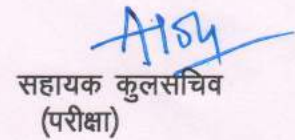 सहायक कुलसचिव
(परीक्षा)